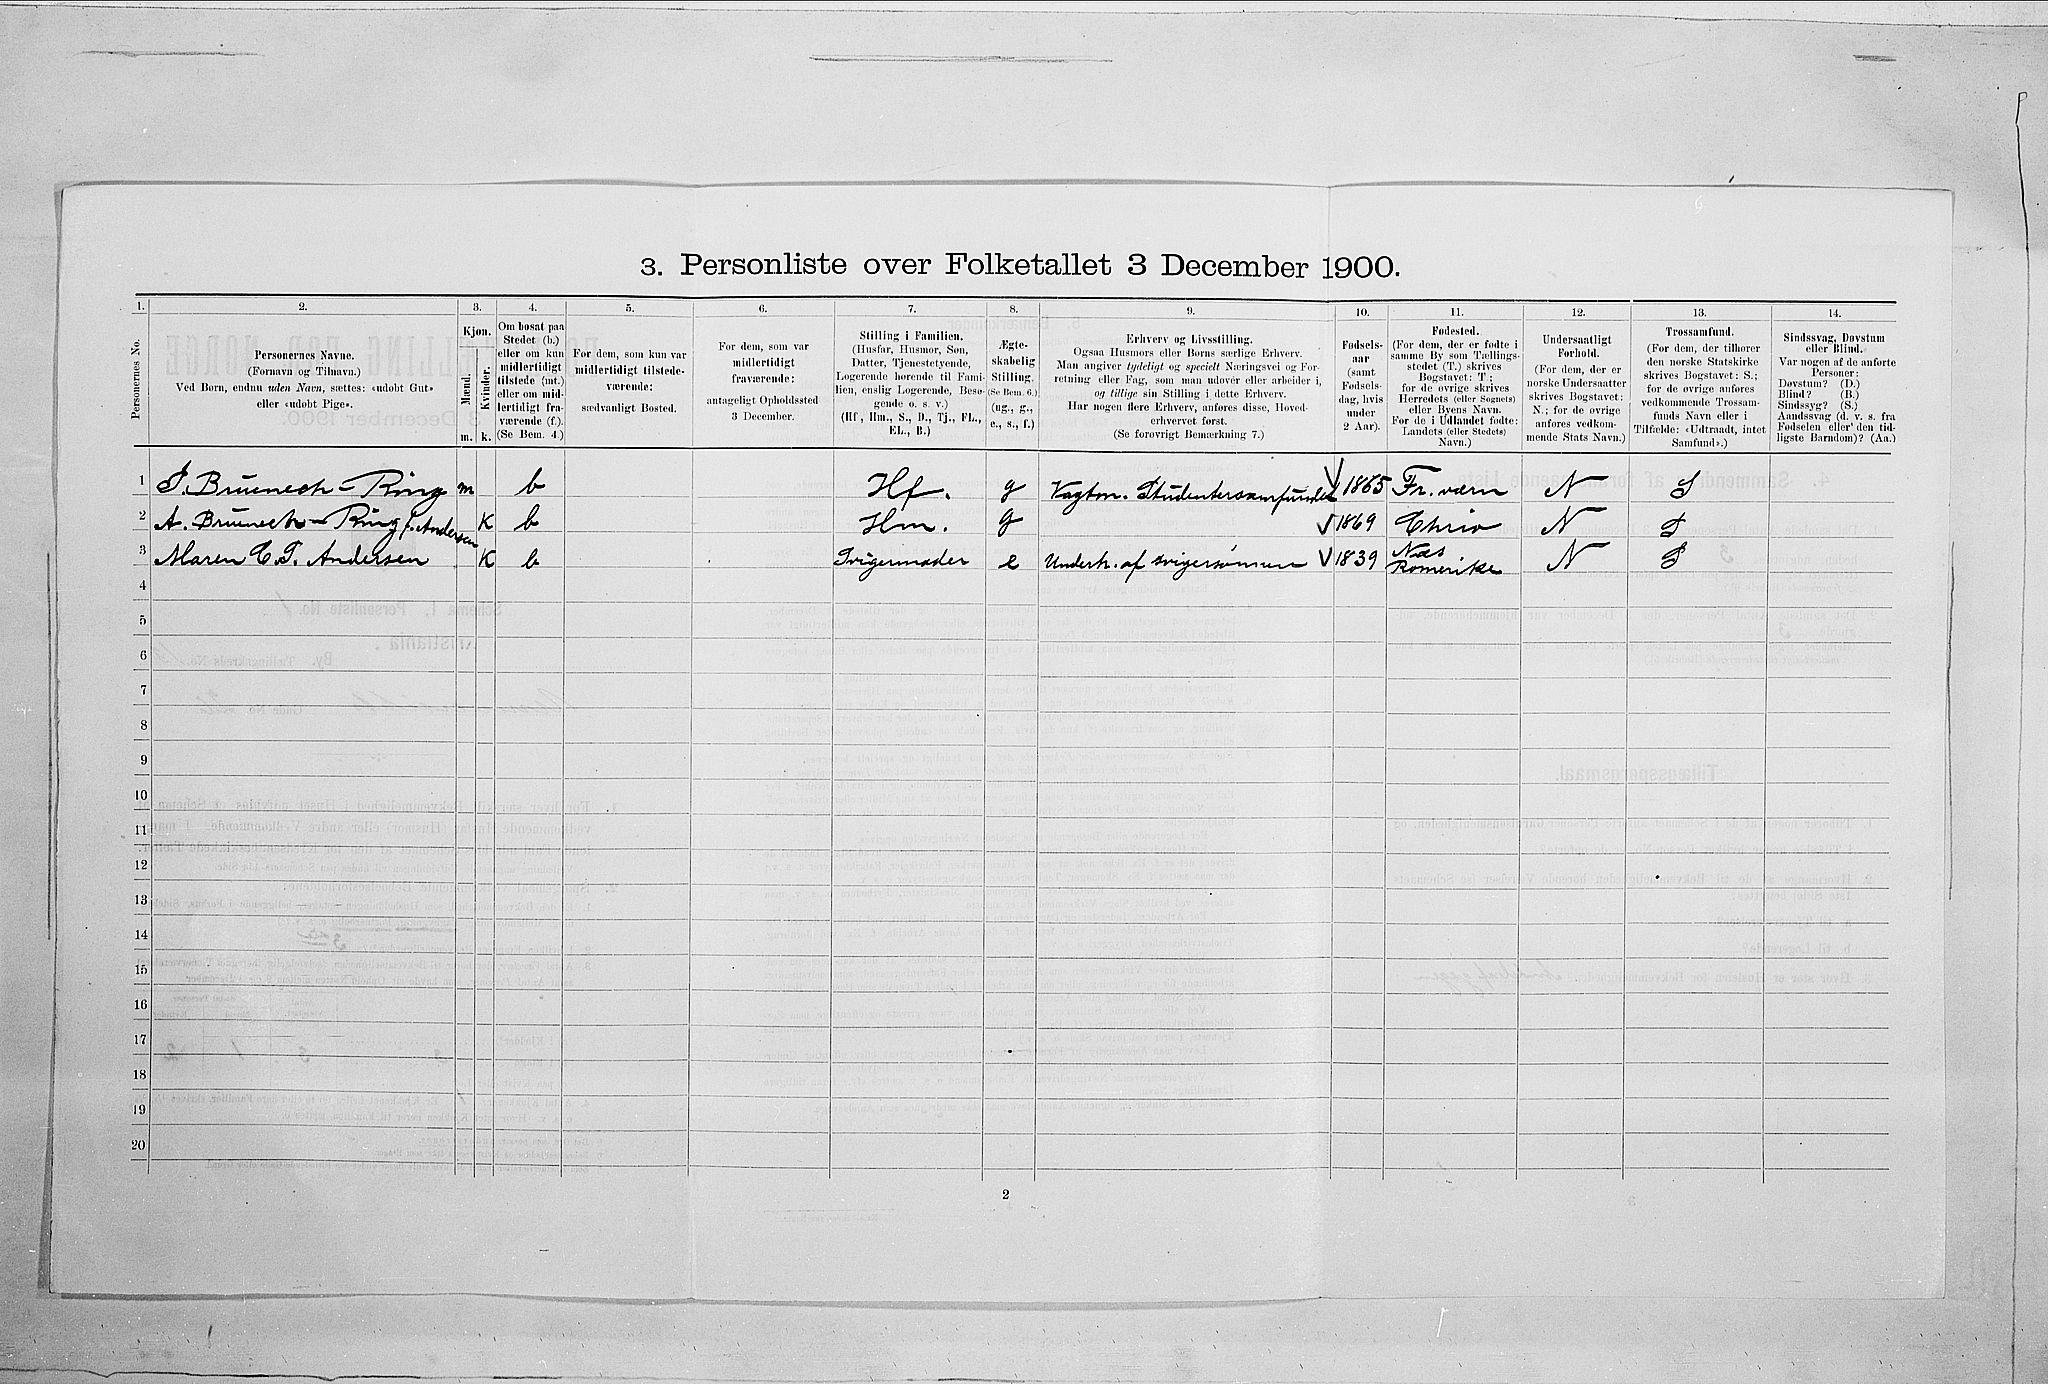 3. Personliste over Folketallet 3 December 1900.
1. 2. 3. 4. 5. 6. 7. 8. 9. 10. 11. 12. 13. 14.
Personernes No.
Personernes Navne.
(Fornavn og Tilnavn.)
Ved Børn, endnu uden Navn, sættes: «udøbt Gut»
eller «udøbt Pige».
Kjøn.
Mænd.
Kvinder.
m. k.
Om bosat paa
Stedet (b.)
eller om kun
midlertidigt
tilstede (mt.)
eller om mid-
lertidigt fra-
værende (f.).
(Se Bem. 4.)
For dem, som kun var
midlertidigt tilstede-
værende:
sædvanligt Bosted.
For dem, som var
midlertidigt
fraværende:
antageligt Opholdssted
3 December.
Stilling i Familien.
(Husfar, Husmor, Søn,
Datter, Tjenestetyende,
Logerende hørende til Fami-
lien, enslig Logerende, Besø-
gende o. s. v.)
(Hf, Hm., S., D., Tj., FL.,
EL., B.)
Ægte-
skabelig
Stilling.
(Se Bem. 6.)
(ug., g.,
e., s., f.)
Erhverv og Livsstilling.
Ogsaa Husmors eller Børns særlige Erhverv.
Man angiver tydeligt og specielt Næringsvei og For-
retning eller Fag, som man udøver eller arbeider i,
og tillige sin Stilling i dette Erhverv.
Har nogen flere Erhverv, anføres disse, Hoved-
erhvervet først.
(Se forøvrigt Bemærkning 7.)
Fødsels-
aar
(samt
Fødsels-
dag, hvis
under
2 Aar).
Fødested.
(For dem, der er fødte i
samme By som Tællings-
stedet (T.) skrives
Bogstavet: T.;
for de øvrige skrives
Herredets (eller Sognets)
eller Byens Navn.
For de i Udlandet fødte:
Landets (eller Stedets)
Navn.)
Undersaatligt
Forhold.
(For dem, der er
norske Undersaatter
skrives Bogstavet:
N.; for de øvrige
anføres vedkom-
mende Stats Navn.)
Trossamfund.
(For dem, der tilhører
den norske Statskirke
skrives Bogstavet: S.;
for de øvrige anføres
vedkommende Trossam-
funds Navn eller i
Tilfælde: «Udtraadt, intet
Samfund».)
Sindssvag, Døvstum
eller Blind.
Var nogen af de anførte
Personer:
Døvstum? (D.)
Blind? (B.)
Sindssyg? (S.)
Aandssvag (d. v. s. fra
Fødselen eller den tid-
ligste Barndom)? (Aa.)
1 Bruenech-Ring m b Hf. g Vagtm. Studentersamfundet 1865 Fr. værn N S
2 A. Bruenech-Ring f. Andersen K b Hm. g 1869 Chria N S
3 Maren C. Andersen K b Svigermoder e Underh. af svigersønnen 1839 Næs Romerike N S
4
5
6
7
8
9
10
11
12
13
14
15
16
17
18
19
20
2